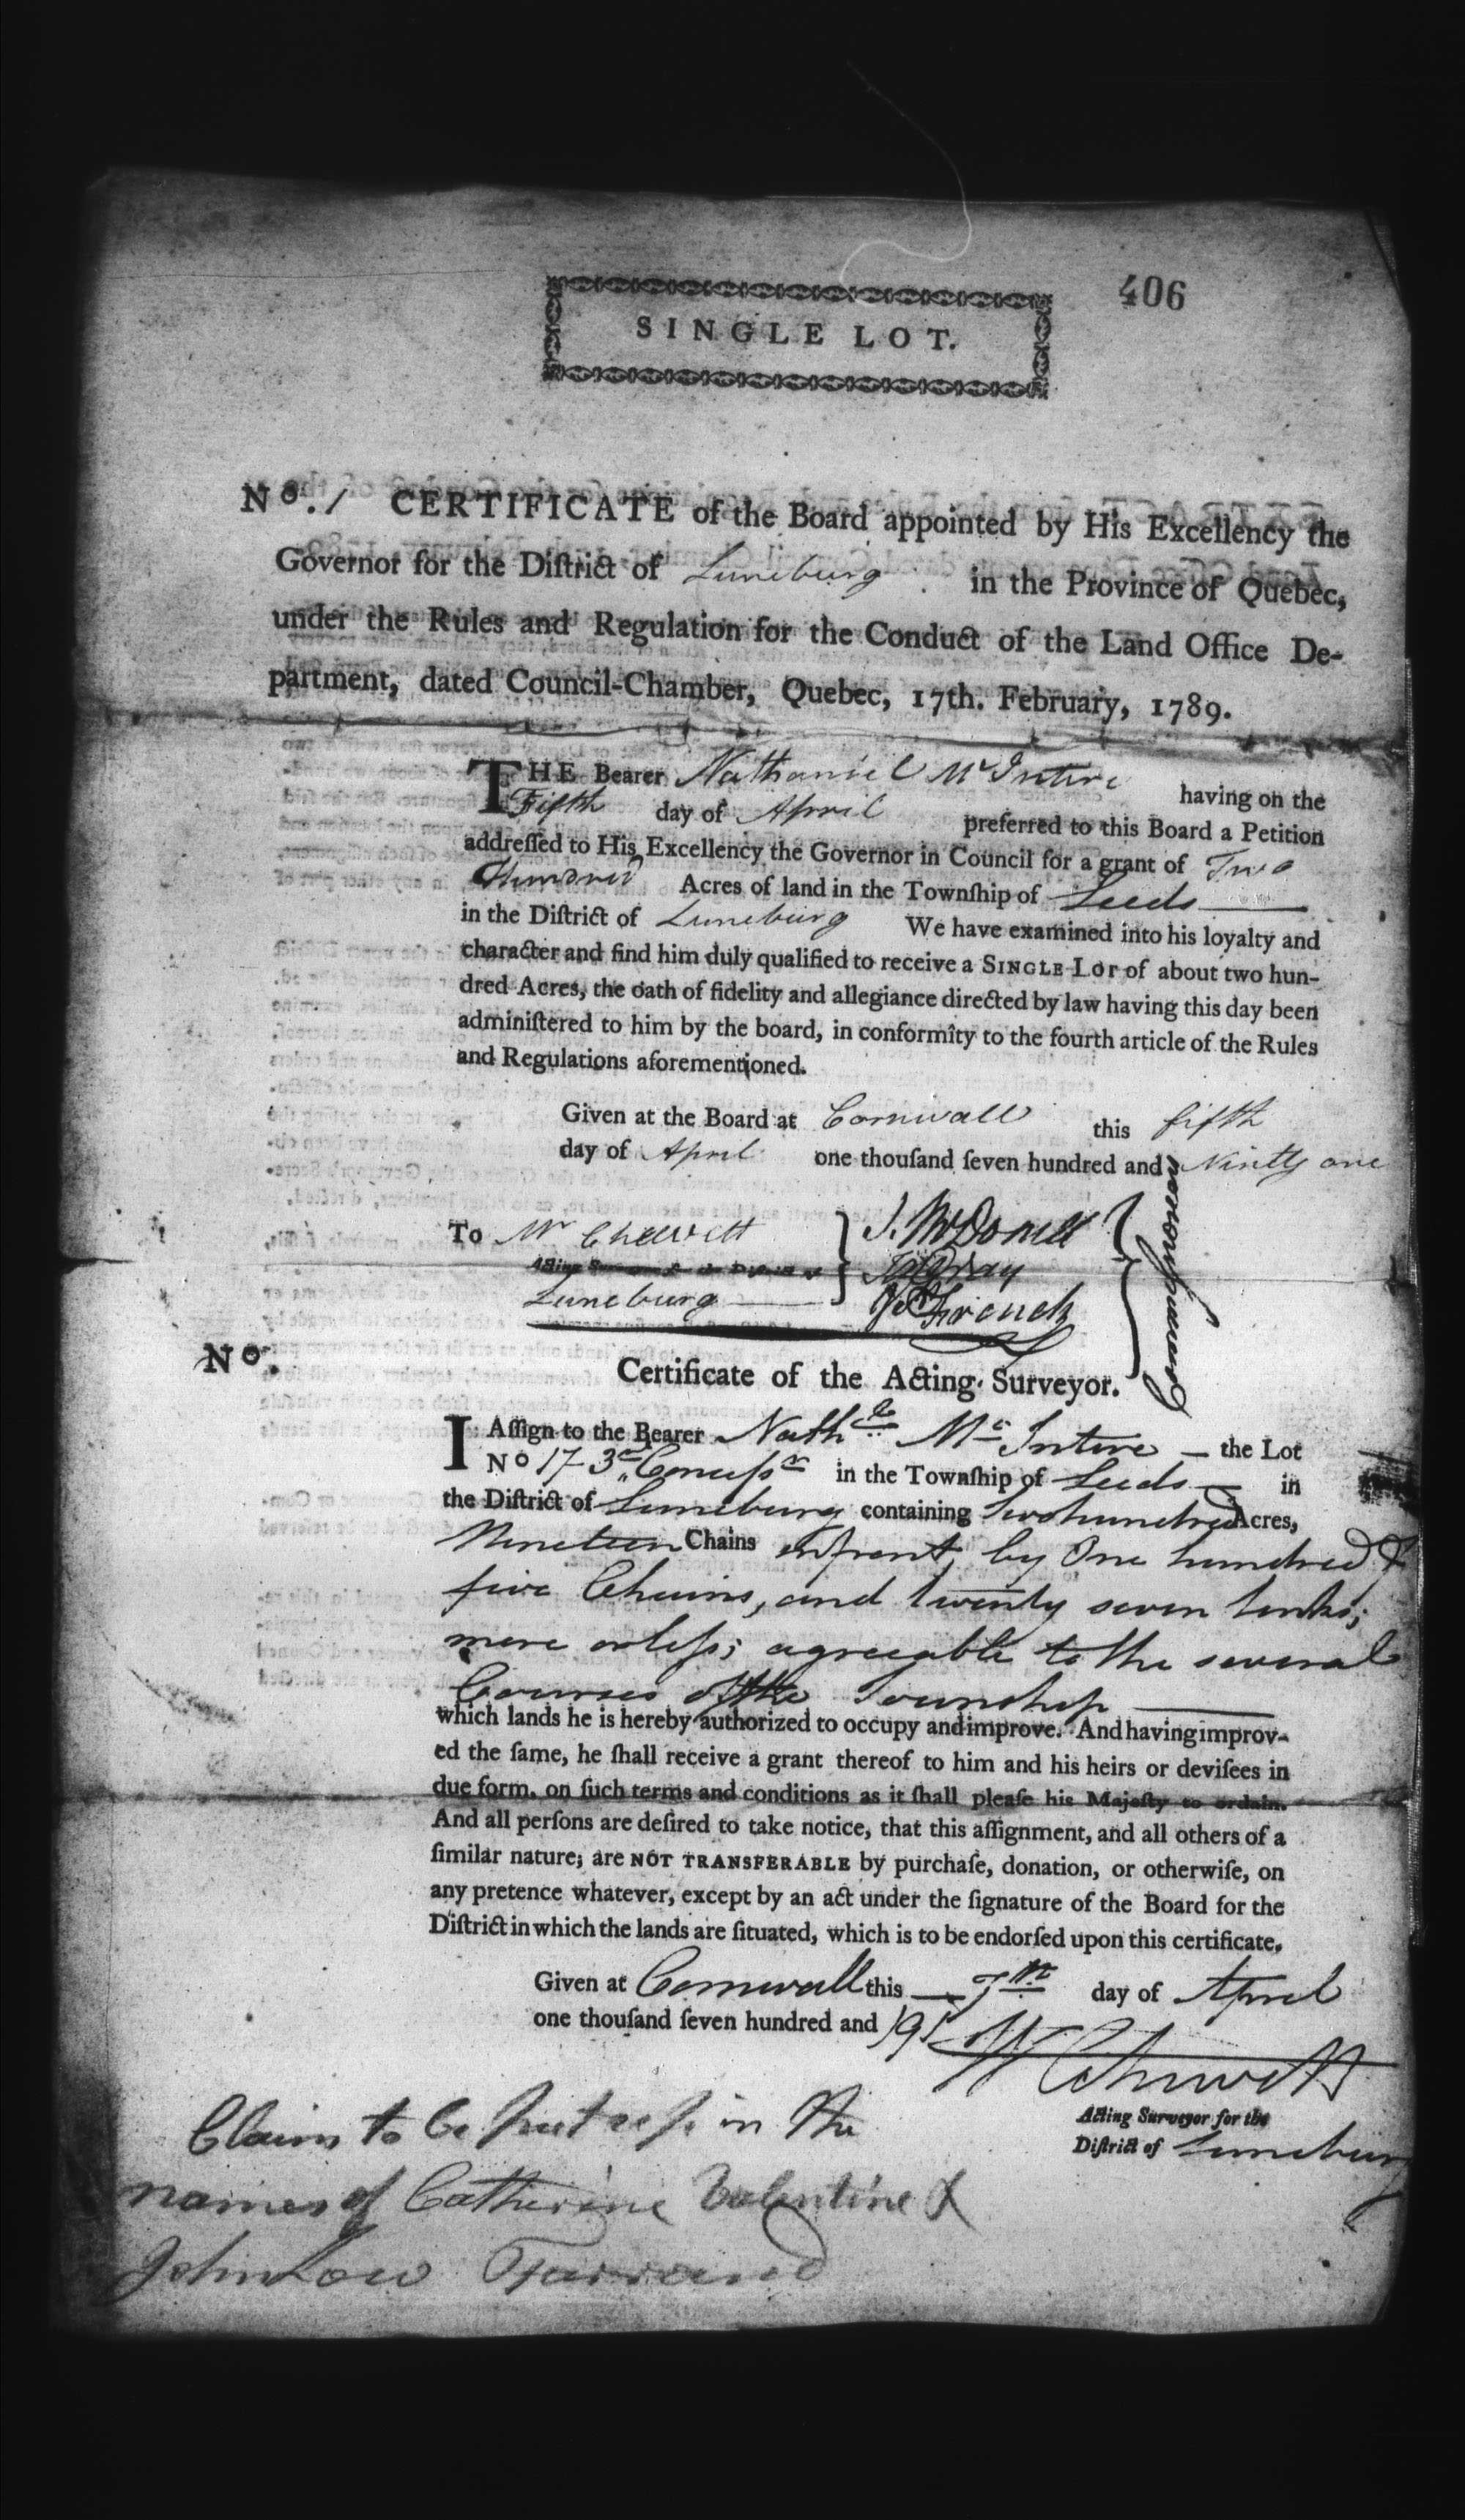 406
SINGLE LOT.
No. 1 CERTIFICATE of the Board appointed by His Excellency the
Governor for the Diſtrict of Luneburg in the Province of Quebec,
under the Rules and Regulation for the Conduct of the Land Office De-
partment, dated Council-Chamber, Quebec, 17th. February, 1789.
THE Bearer Nathaniel McIntire having on the
Fifth day of April preferred to this Board a Petition
addreſſed to His Excellency the Governor in Council for a grant of Two
Hundred Acres of land in the Townſhip of Leeds
in the Diſtrict of Luneburg We have examined into his loyalty and
character and find him duly qualified to receive a SINGLE LOT of about two hun-
dred Acres, the oath of fidelity and allegiance directed by law having this day been
adminiſtered to him by the board, in conformity to the fourth article of the Rules
and Regulations aforementioned.
Given at the Board at Cornwall this fifth
day of April one thouſand ſeven hundred and Ninety one
To Mr Chewett
Acting Surveyor for the Diſtrict of
Luneburg
J. McDonell
French
No.
Certificate of the Acting Surveyor.
I Aſſign to the Bearer Nathl. Mc Intire — the Lot
No 17 3rd Conceſsn in the Townſhip of Leeds — in
the Diſtrict of Luneburg containing two hundred Acres,
Nineteen Chains in front, by One hundred &
five Chains, and twenty seven links;
more or leſs; agreeable to the several
Courses of the Township
which lands he is hereby authorized to occupy and improve. And having improv-
ed the ſame, he ſhall receive a grant thereof to him and his heirs or deviſees in
due form, on ſuch terms and conditions as it ſhall pleaſe his Majeſty to ordain.
And all perſons are deſired to take notice, that this aſſignment, and all others of a
ſimilar nature; are NOT TRANSFERABLE by purchaſe, donation, or otherwiſe, on
any pretence whatever, except by an act under the ſignature of the Board for the
Diſtrict in which the lands are ſituated, which is to be endorſed upon this certificate.
Given at Cornwall this — 7th day of April
one thouſand ſeven hundred and 91
W Chewett
Acting Surveyor for the
Diſtrict of Luneburg
Claim to be put up in the
names of Catherine Valentine &
John Low Farrand